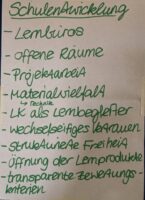 Schulentwicklung
- Lernbüros
- offene Räume
- Projektarbeit
- Materialvielfalt
↳ Technik
- LK als Lernbegleiter
- wechselseitiges Vertrauen
- strukturierte Freiheit
- Öffnung der Lernprodukte
- transparente Bewertungs-
kriterien